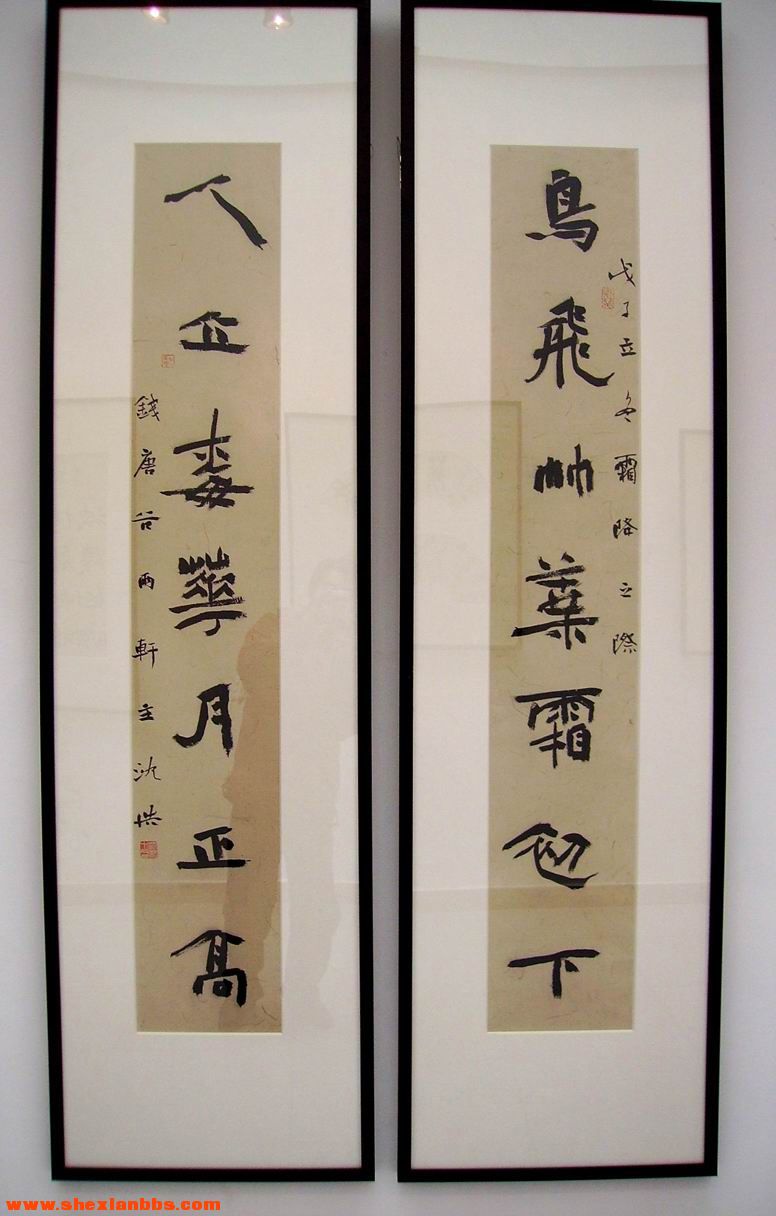 鳥飛竹葉霜初下
戊子立冬霜降之際
人立梅華月正高
錢唐谷雨軒主沈浩
www.shexianbbs.com